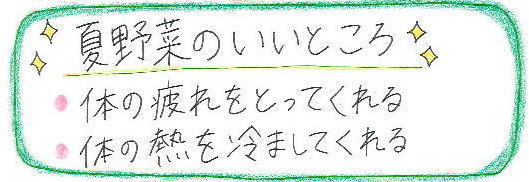 夏野菜のいいところ
• 体の疲れをとってくれる
• 体の熱を冷ましてくれる